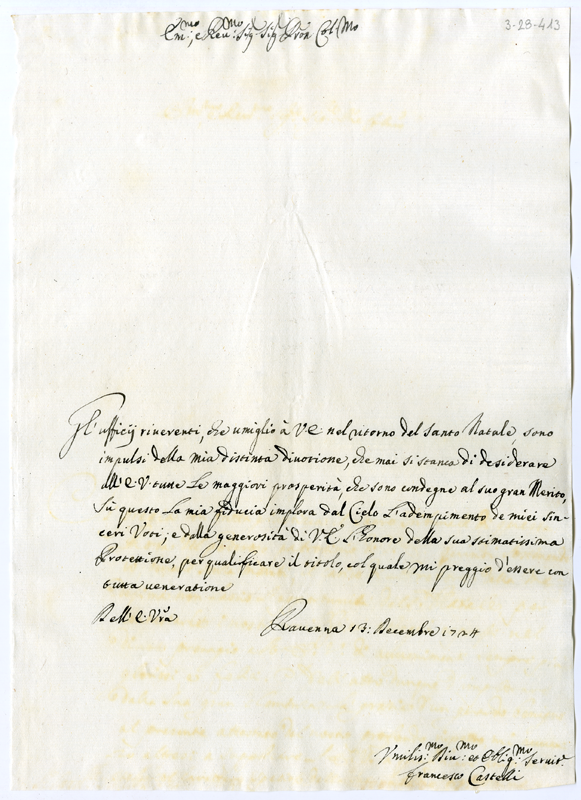 Em:mo, e Reu:mo Sig: Sig: Pron Col:mo
3-28-413
Gl'ufficij riuerenti, che umiglio à V E nel ritorno del Santo Natale, sono
impulsi della mia distinta diuotione, che mai si stanca di desiderare
all'E. V. tutte Le maggiori prosperità, che sono condegne al suo gran Merito,
Sù questo La mia fiducia implora dal Cielo L'adempimento de miei sin-
ceri Voti; e dalla generosità di V. E. L'Honore della sua stimatissima
Protettione, per qualificare il titolo, col quale mi preggio d'essere con
tutta veneratione
Dell'E. Vra
Ravenna 13: Decembre 1724
Vmilis:mo Diu:mo et Oblig:mo Seruit:e
Francesco Castelli